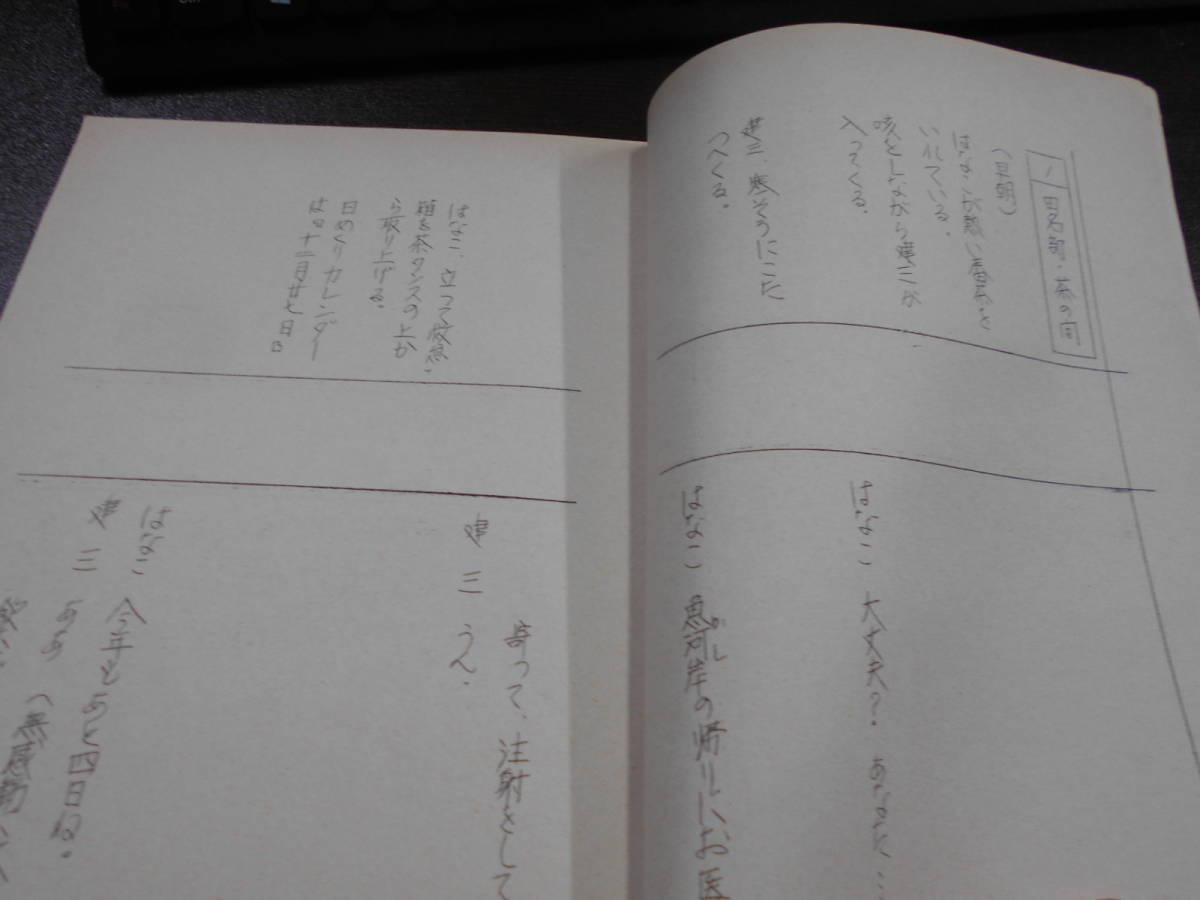 1 田名部・茶の間
(早朝)
はなこが熱い番茶を
いれている。
咳をしながら建三が
入ってくる。
建三、寒そうにこた
つへくる。
はなこ 大丈夫?。あなた…
はなこ 魚河岸の帰りにお医
がし
寄って、注射をして
建三 うん。
はなこ、立って救急
箱を茶タンスの上か
ら取り上げる。
日めくりカレンダー
は 十二月廿七日
はなこ 今年もあと四日ね。
建三 ああ